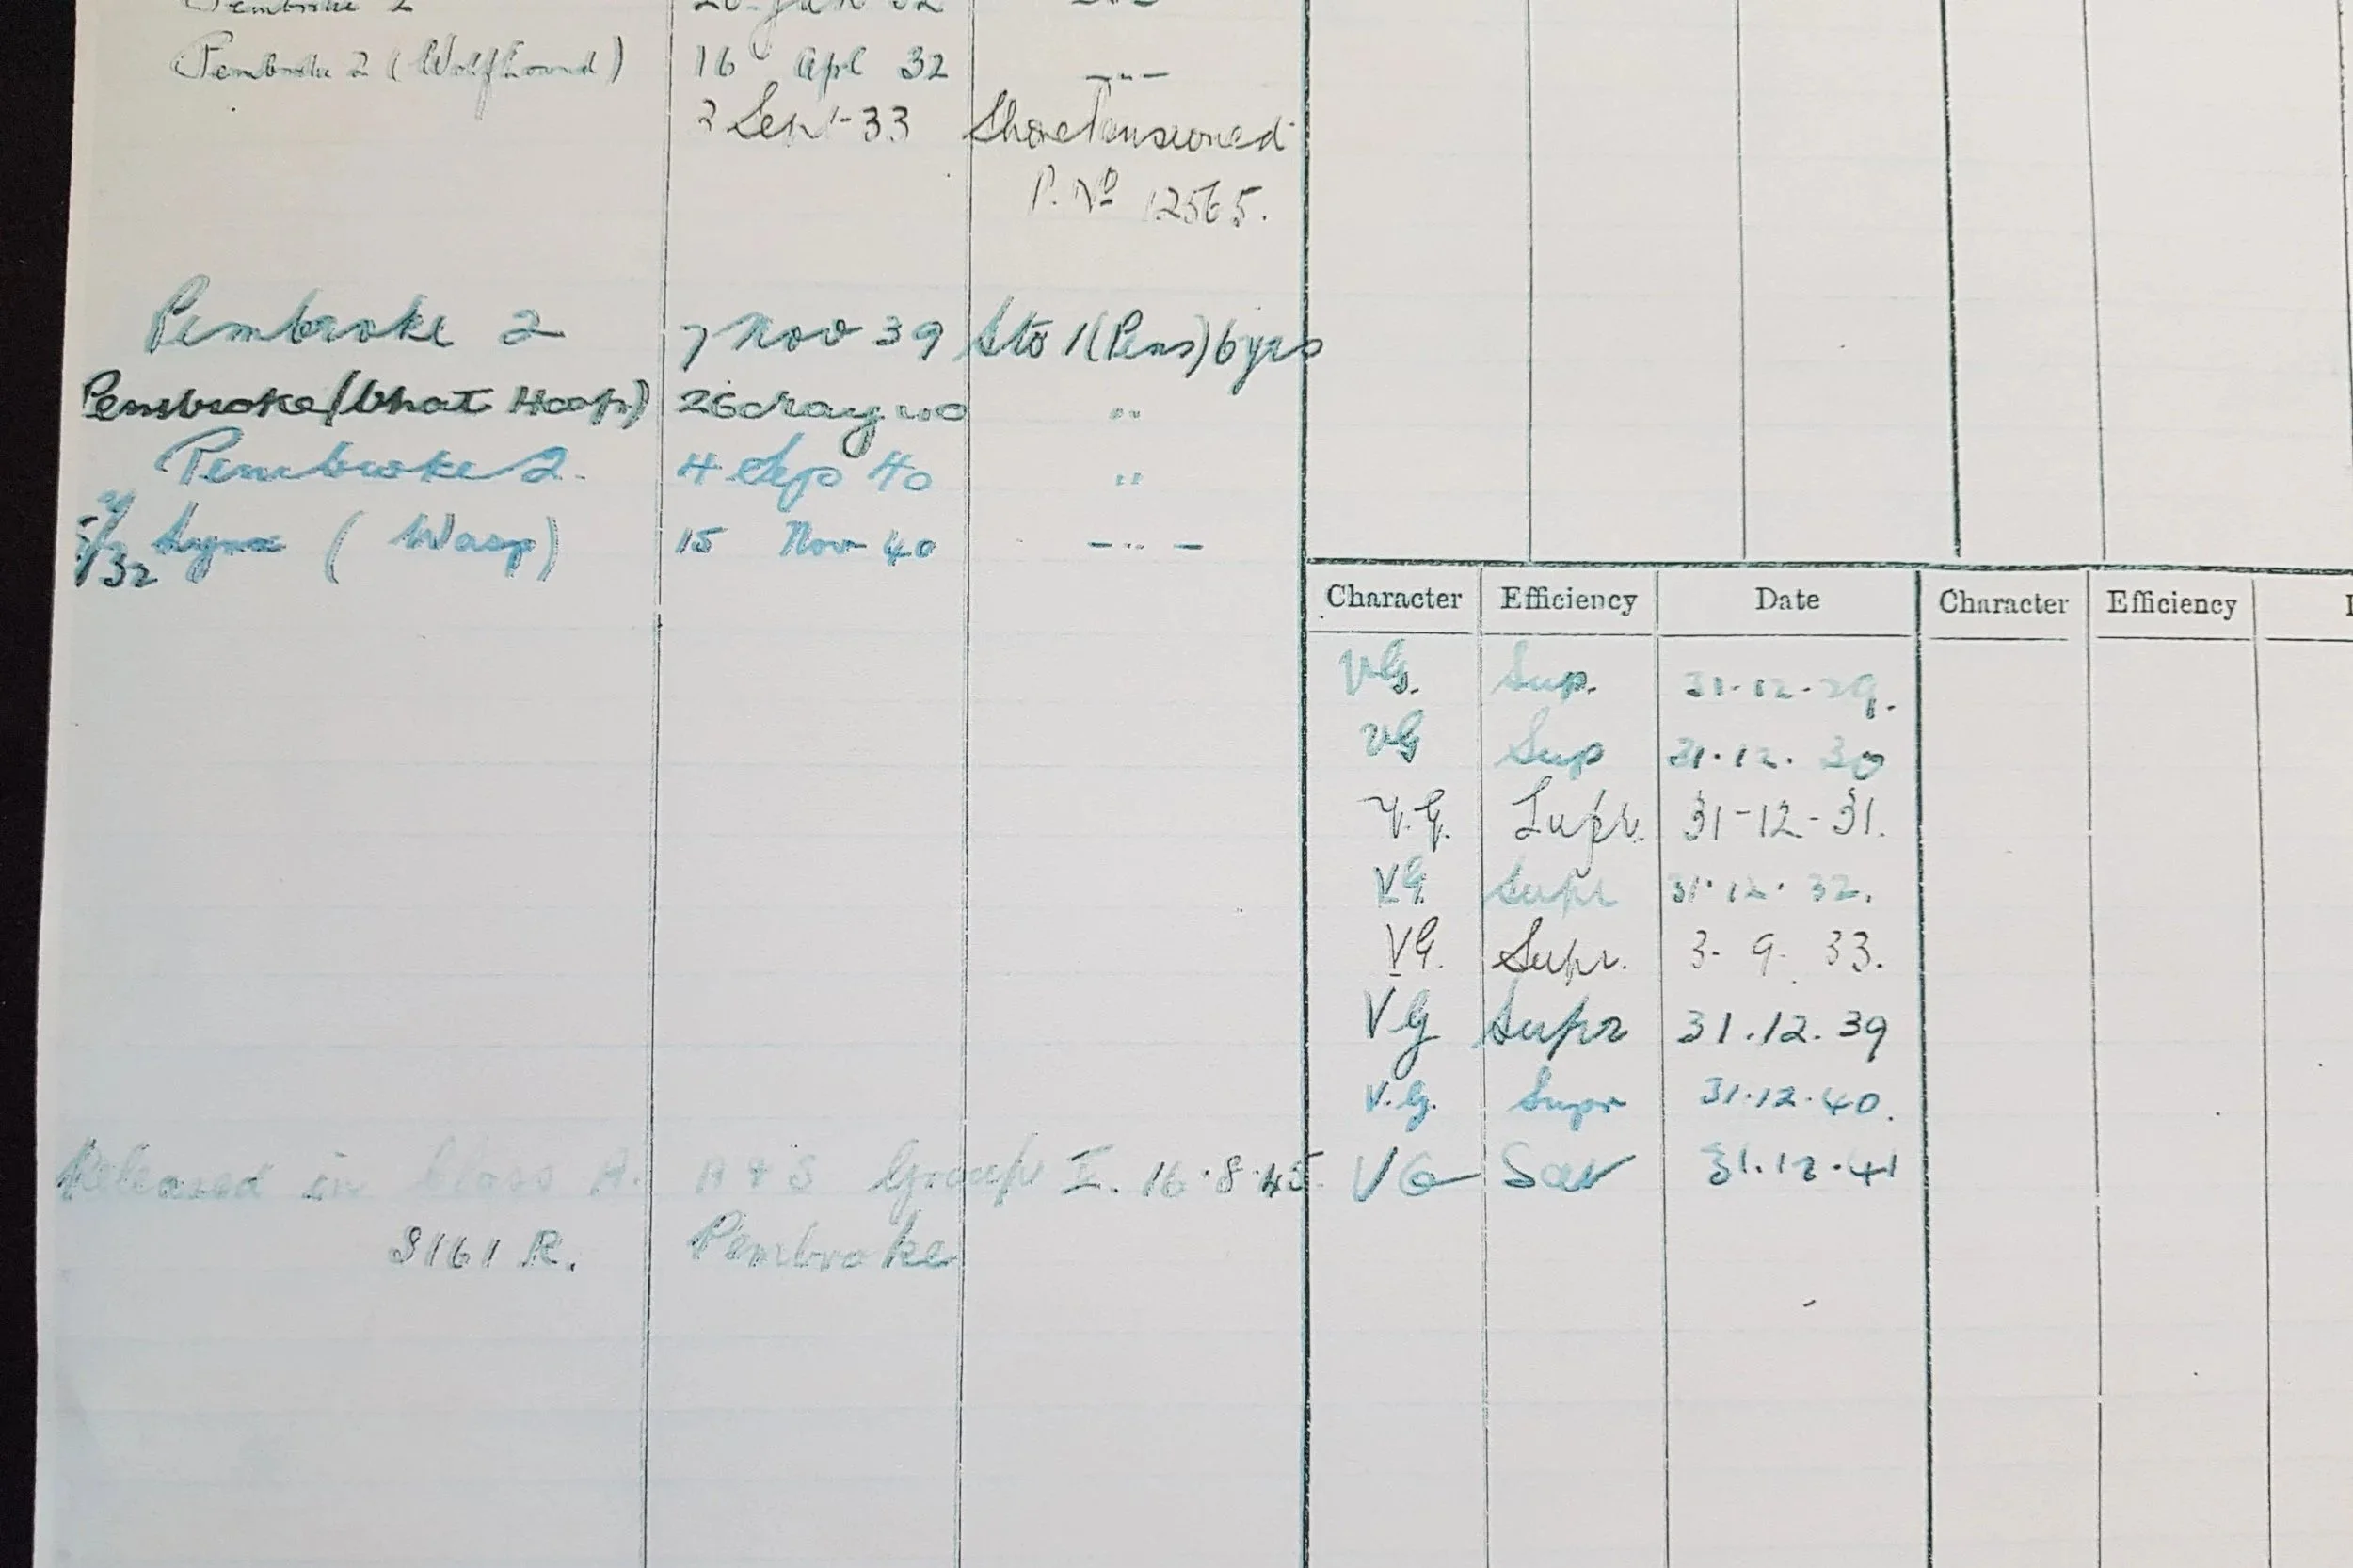 Pembroke 2
Pembroke 2 (Wolfhound) 16 Apl 32 -"-
2 Sep-33 Shore Pensioned
P. No 12565.
Pembroke 2 7 Nov 39 Sto 1 (Pens) 6 yrs
Pembroke (Chat Hosp) 26 May 40 "
Pembroke 2. 4 Sep 40 "
Lynx (Wasp) 15 Nov 40 -"-
32
Character Efficiency Date Character Efficiency
VG. Sup. 31-12-29.
VG Sup 31.12.30
V.G. Supr. 31-12-31.
VG Supr 31.12.32.
VG. Supr. 3. 9. 33.
VG Supr 31.12.39
V.G. Supr 31.12.40.
VG Sat 31.12.41
Released in Class A. A & S Group I. 16.8.45
S161 R. Pembroke